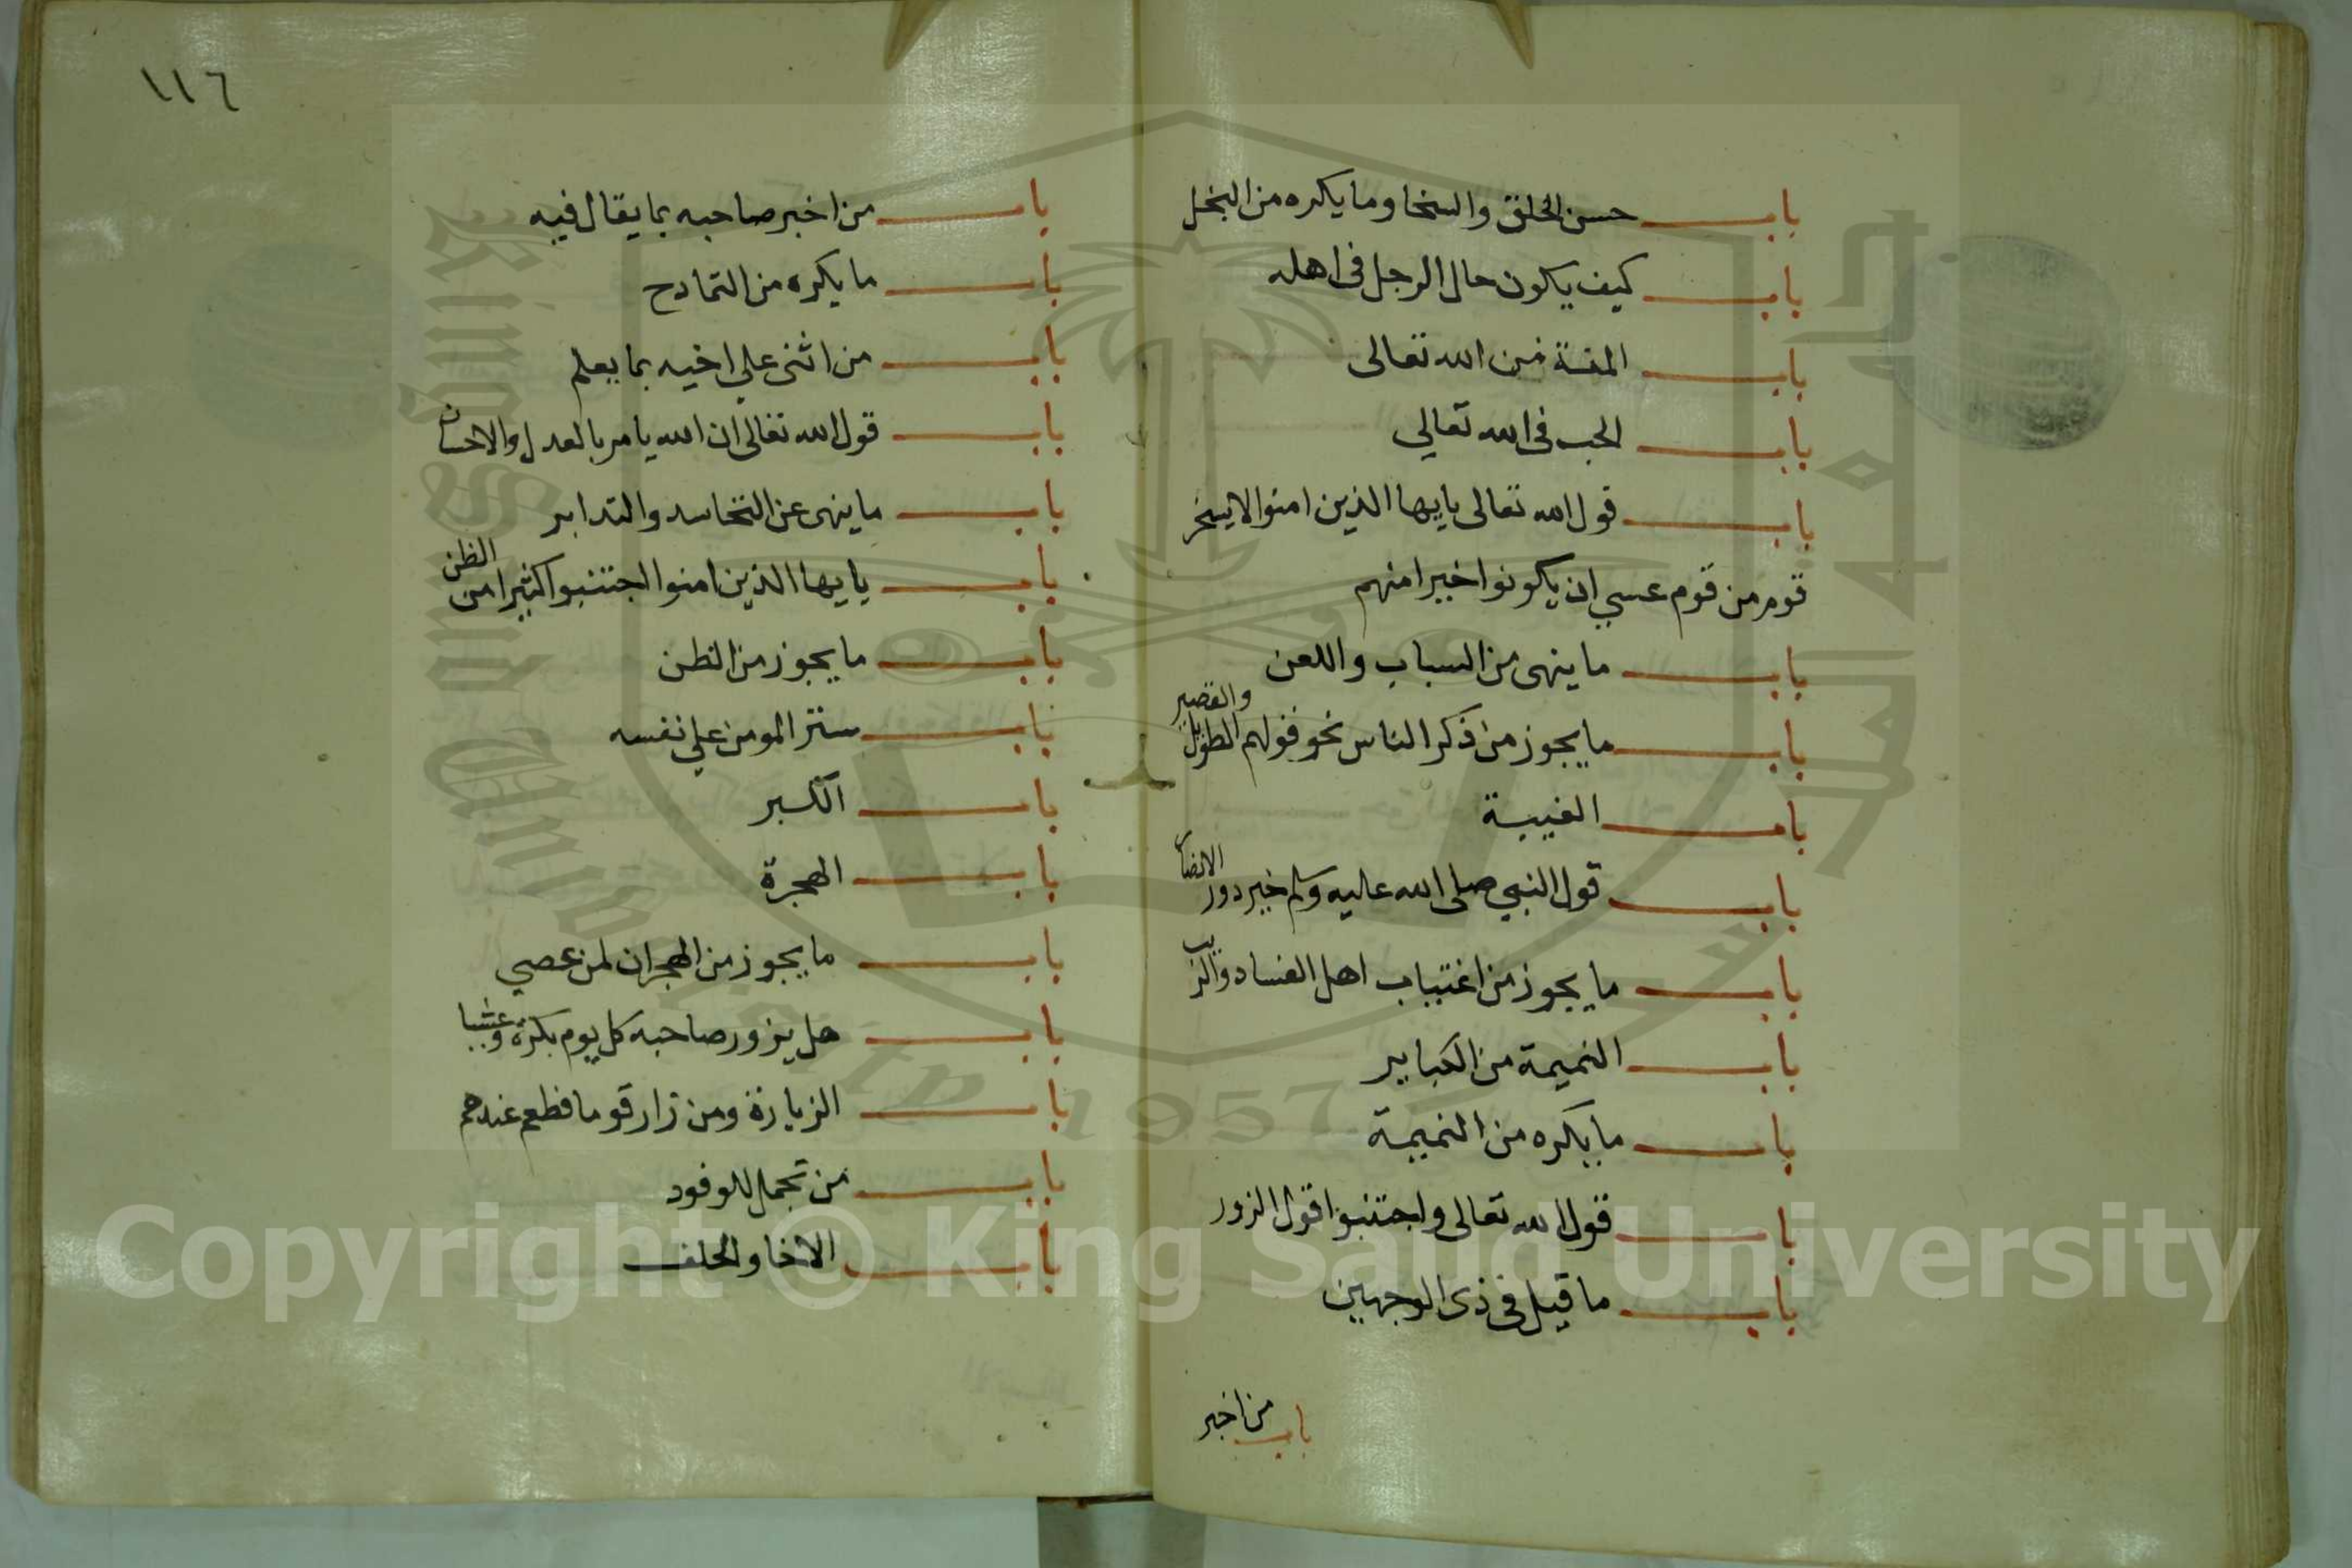 باب حسن الخلق والسخا وما يكره من البخل
باب كيف يكون حال الرجل فى اهله
باب المقة من الله تعالى
باب الحب فى الله تعالي
باب قول الله تعالى يايها الذين امنوا لا يسخر
قوم من قوم عسي ان يكونوا خيرا منهم
باب ما ينهى من السباب واللعن
باب ما يجوز من ذكر الناس نحو قولهم الطويل والقصير
باب الغيبة
باب قول النبي صلى الله عليه وسلم خير دور الانصار
باب ما يجوز من اغتياب اهل الفساد والريب
باب النميمة من الكباير
باب ما يكره من النميمة
باب قول الله تعالى واجتنبوا قول الزور
باب ما قيل فى ذى الوجهين
باب من اخبر
١١٦
باب من اخبر صاحبه بما يقال فيه
باب ما يكره من التمادح
باب من اثنى علي اخيه بما يعلم
باب قول الله تعالى ان الله يامر بالعدل والاحسان
باب ما ينهى عن التحاسد والتدابر
باب يايها الذين امنوا اجتنبوا كثيرا من الظن
باب ما يجوز من الظن
باب ستر المومن علي نفسه
باب الكبر
باب الهجرة
باب ما يجوز من الهجران لمن عصي
باب هل يزور صاحبه كل يوم بكرة وعشيا
باب الزيارة ومن زار قوما فطعم عندهم
باب من تجمل للوفود
باب الاخا والحلف
Copyright © King Saud University
King Saud University
1957